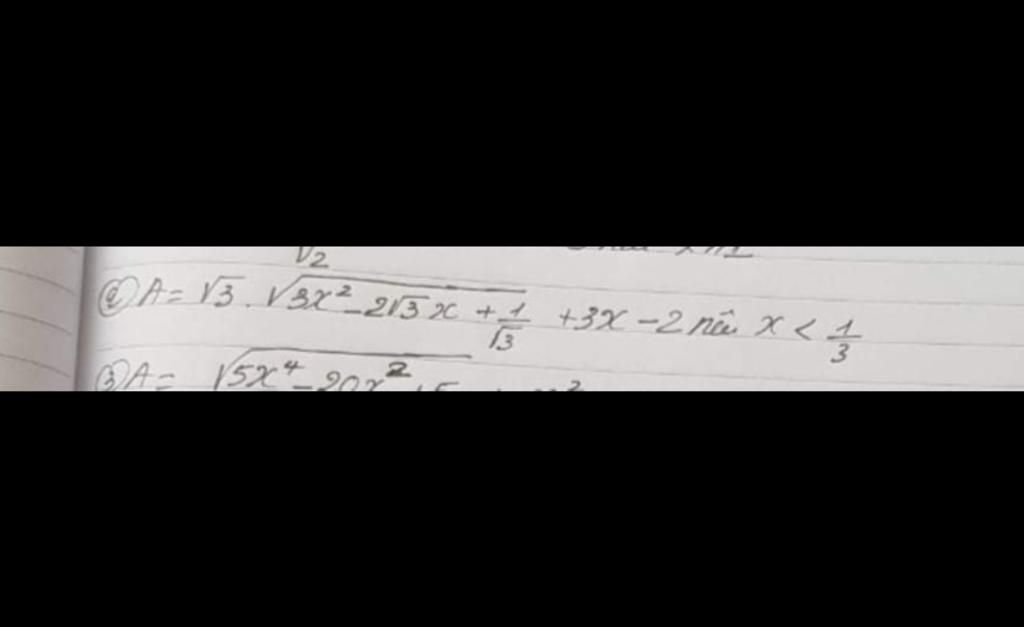 √2
② A = √3 . √3x² - 2√3x + 1/√3 + 3x - 2 nếu x < 1/3
③ A = √5x⁴ - 20x²